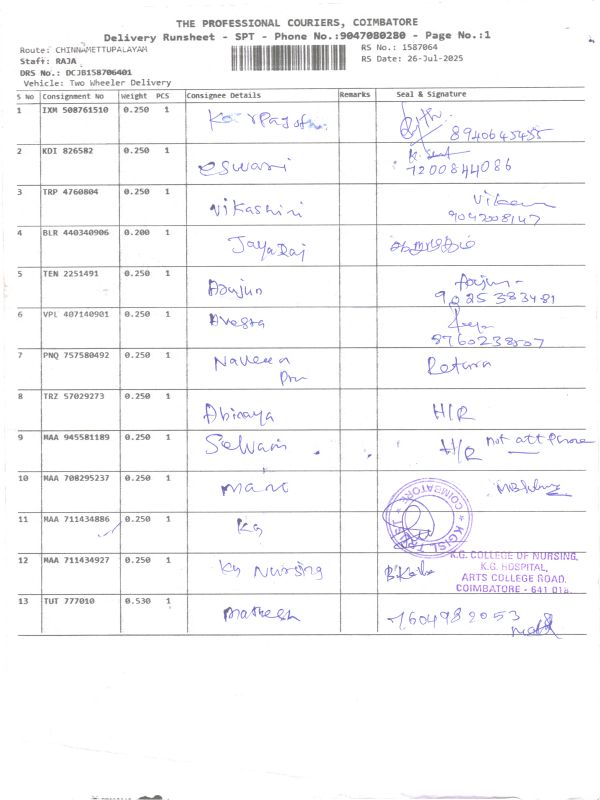 THE PROFESSIONAL COURIERS, COIMBATORE
Delivery Runsheet - SPT - Phone No.:9047080280 - Page No.:1
Route: CHINNAMETTUPALAYAM
RS No.: 1587064
Staff: RAJA
RS Date: 26-Jul-2025
DRS No.: DCJB158706401
Vehicle: Two Wheeler Delivery
S No Consignment No Weight PCS Consignee Details Remarks Seal & Signature
1 IXM 508761510 0.250 1
8940645455
2 KDI 826582 0.250 1 eswari
7200844086
3 TRP 4760804 0.250 1 Vikashini
9042008147
4 BLR 440340906 0.200 1 JayaRaj
5 TEN 2251491 0.250 1 Arjun Arjun
9025383481
6 VPL 407140901 0.250 1
8760238507
7 PNQ 757580492 0.250 1 Naveena Return
8 TRZ 57029273 0.250 1 Abinaya H/R
9 MAA 945581189 0.250 1 Selvam H/R not att Phone
10 MAA 708295237 0.250 1 mani
COIMBATORE
11 MAA 711434886 0.250 1 KG
12 MAA 711434927 0.250 1 KG Nursing
K.G. COLLEGE OF NURSING,
K.G. HOSPITAL,
ARTS COLLEGE ROAD,
COIMBATORE - 641 018.
13 TUT 777010 0.530 1 7604982053